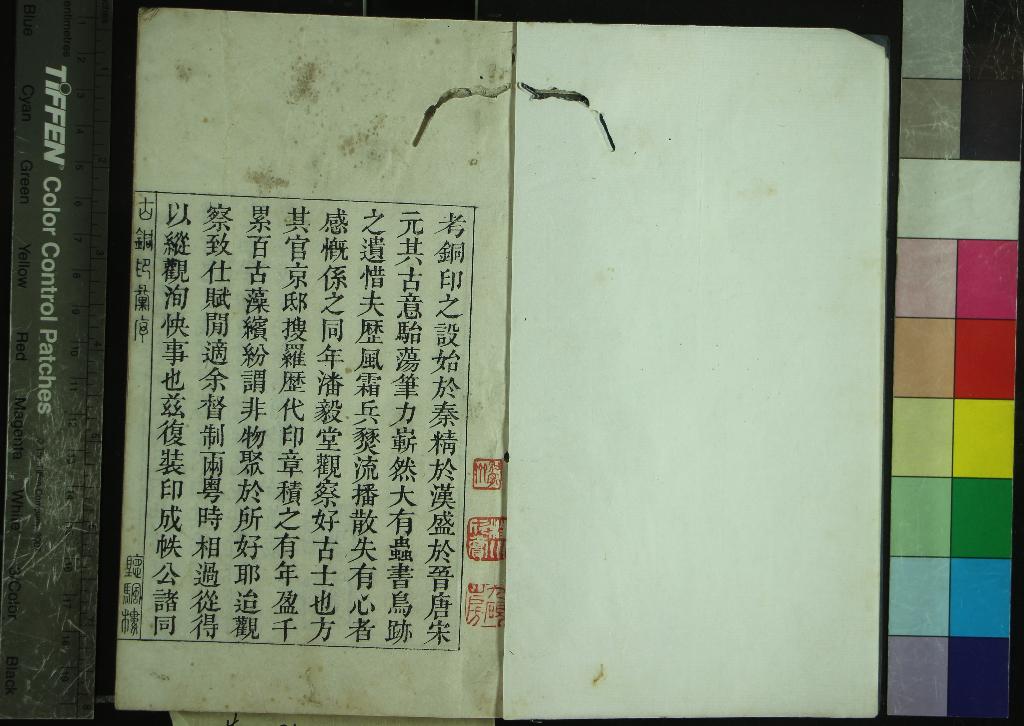 考銅印之設始於秦精於漢盛於晉唐宋
元其古意駘蕩筆力嶄然大有蟲書鳥跡
之遺惜夫歷風霜兵燹流播散失有心者
感慨係之同年潘毅堂觀察好古士也方
其官京邸搜羅歷代印章積之有年盈千
累百古藻繽紛謂非物聚於所好耶迨觀
察致仕賦閒適余督制兩粵時相過從得
以縱觀洵快事也茲復裝印成帙公諸同
古銅印彙序
聽颿樓
TIFFEN Color Control Patches
Blue
Cyan
Green
Yellow
Red
Magenta
White
3/Color
Black